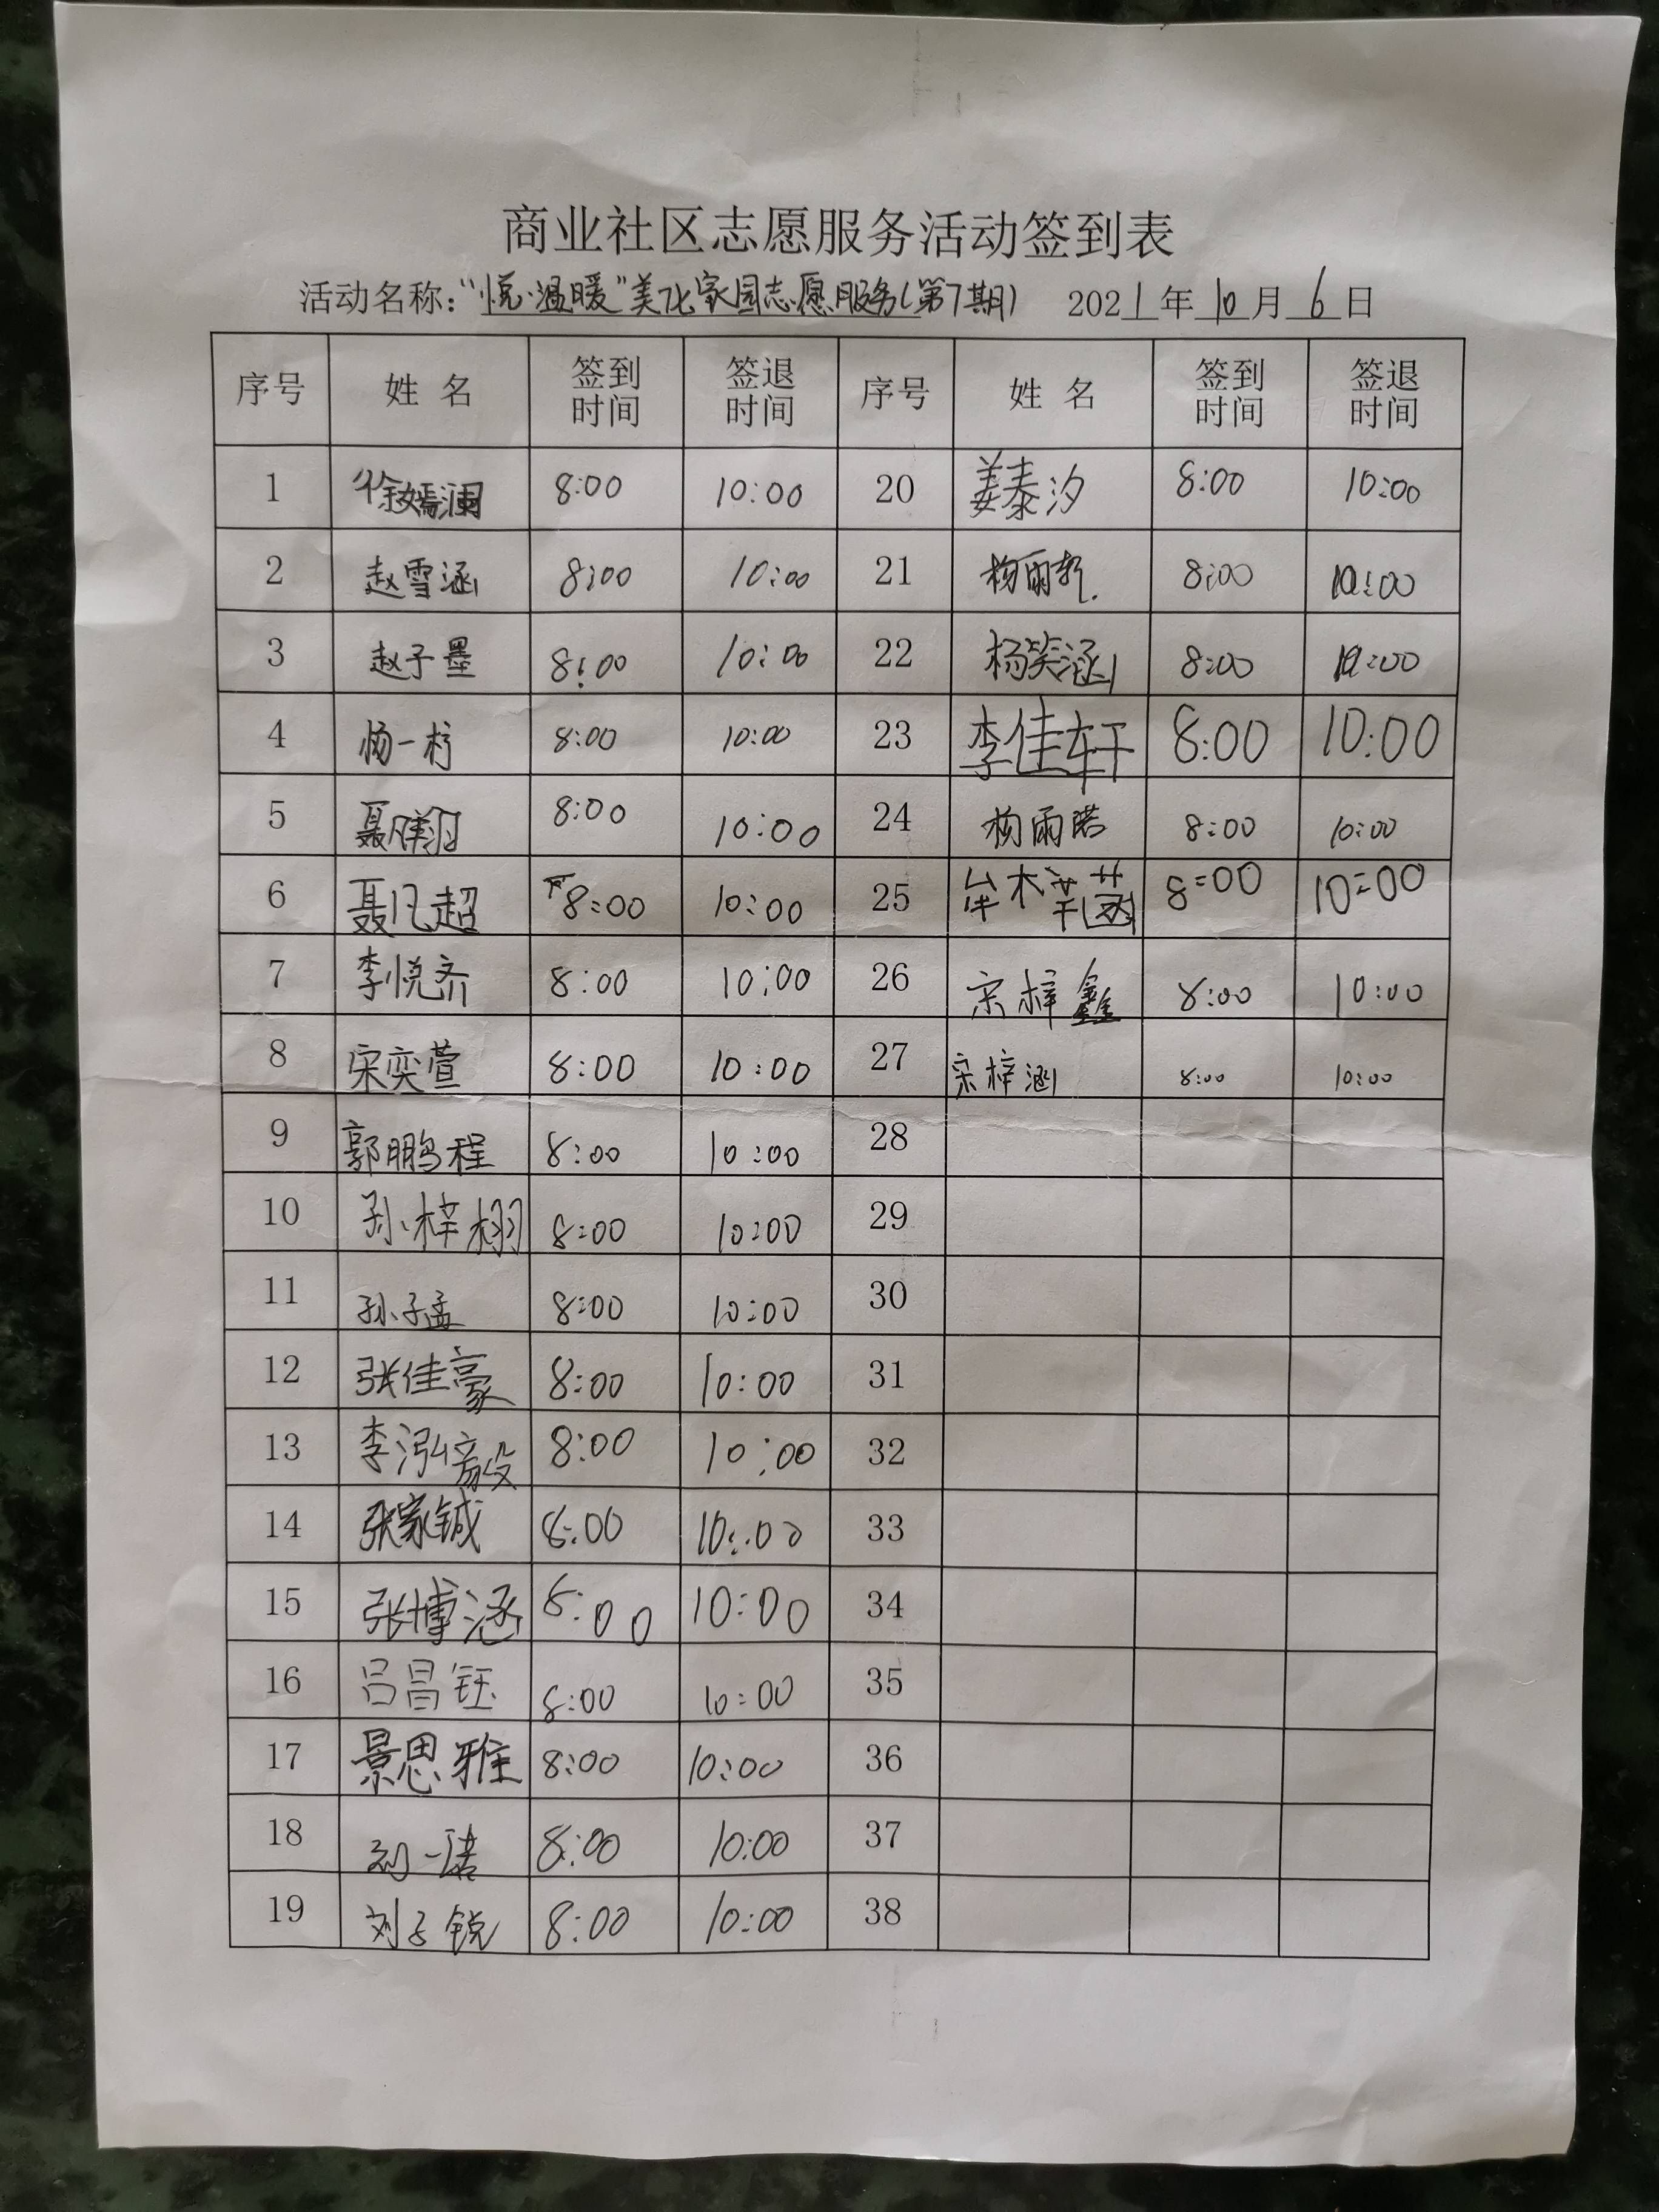 商业社区志愿服务活动签到表
活动名称:“悦·温暖”美化家园志愿服务(第7期) 2021年10月6日
序号 姓名 签到时间 签退时间 序号 姓名 签到时间 签退时间
1 徐嫣澜 8:00 10:00 20 姜泰汐 8:00 10:00
2 赵雪涵 8:00 10:00 21 杨雨轩 8:00 10:00
3 赵子墨 8:00 10:00 22 杨笑涵 8:00 10:00
4 杨一 8:00 10:00 23 李佳轩 8:00 10:00
5 聂翔 8:00 10:00 24 杨雨 8:00 10:00
6 聂凡超 8:00 10:00 25 8:00 10:00
7 李悦齐 8:00 10:00 26 宋梓鑫 8:00 10:00
8 宋奕萱 8:00 10:00 27 宋梓涵 8:00 10:00
9 郭鹏程 8:00 10:00 28
10 孙梓栩 8:00 10:00 29
11 孙子孟 8:00 10:00 30
12 张佳豪 8:00 10:00 31
13 李泓毅 8:00 10:00 32
14 张家铖 8:00 10:00 33
15 张博涵 8:00 10:00 34
16 吕昌钰 8:00 10:00 35
17 景思雅 8:00 10:00 36
18 刘一诺 8:00 10:00 37
19 刘子锐 8:00 10:00 38